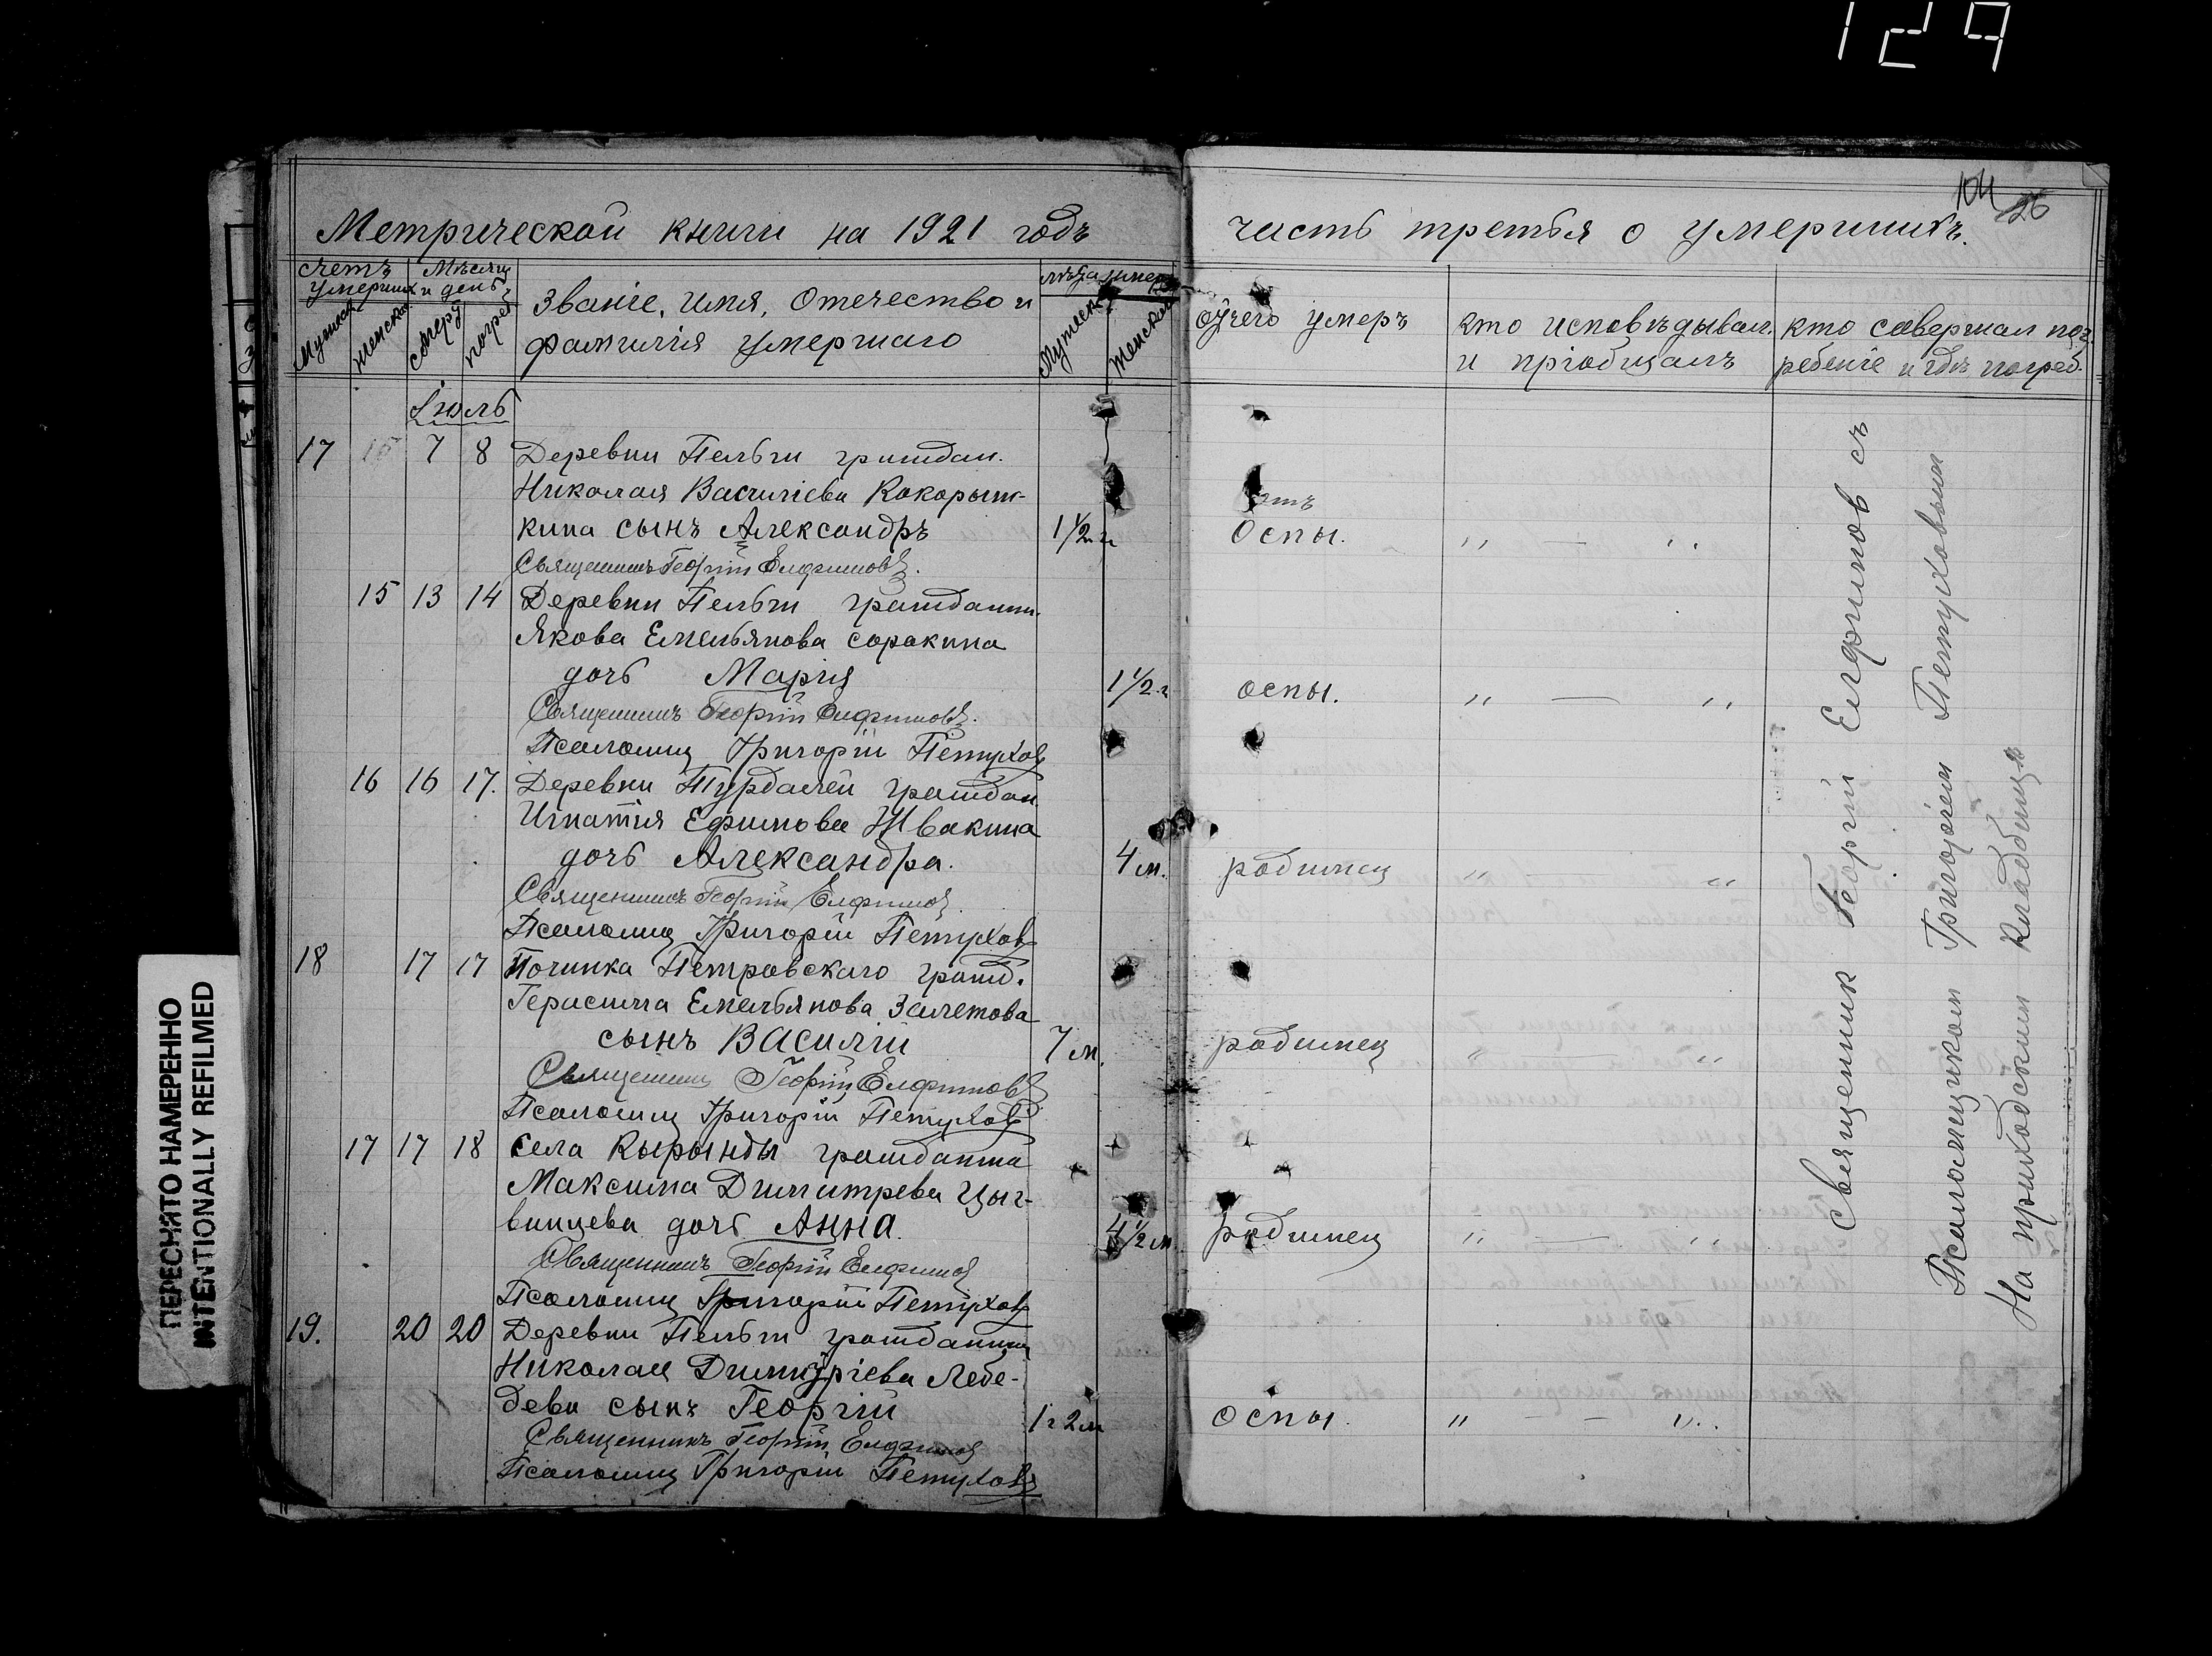 129
104 26
Метрической книги на 1921 годъ
часть третья о умершихъ.
счетъ умершихъ
Мѣсяцъ и день
Званіе, имя, отечество и
фамилія умершаго
Мужеска
женска
смерт
погреб
лѣта умер
Мужеск
Женска
отъ чего умеръ
кто исповѣдывал.
и пріобщалъ
кто совершал пог-
ребеніе и гдѣ погреб.
Іюль
17 15 7 8 Деревни Пельги граждан.
Николая Василіева Кокорыш-
кина сынъ Александръ 1 1/2 г отъ Оспы. " — "
Священникъ Георгій Елфимовъ.
15 13 14 Деревни Пельги гражданин.
Якова Емельянова Сорокина
дочь Марія 1 1/2 г оспы. " — "
Священникъ Георгій Елфимовъ.
Псаломщ Григорій Петуховъ
16 16 17. Деревни Пурдалей граждан
Игнатія Ефимова Швакина
дочь Александра. 4 м. родимец " — "
Священникъ Георгій Елфимов
Псаломщ Григорій Петухов
18 17 17 Починка Петровскаго гражд.
Герасима Емельянова Залетова
сынъ Василій 7 м. родимец " — "
Священник Георгій Елфимовъ
Псаломщ Григорій Петуховъ
17 17 18 села Кырынды гражданина
Максима Димитрева Цыг-
винцева дочь Анна. 4 1/2 м родимец " — "
Священникъ Георгій Елфимов
Псаломщ Григорій Петухов
19. 20 20 Деревни Пельги гражданин
Николая Димитріева Лебе-
дева сынъ Георгій 1 г 2 м оспы. " — — "
Священникъ Георгій Елфимов
Псаломщ Григорій Петуховъ
Священник Георгій Елфимов съ
Псаломщиком Григоріем Петуховым
На приходском кладбище
ПЕРЕСНЯТО НАМЕРЕННО
INTENTIONALLY REFILMED